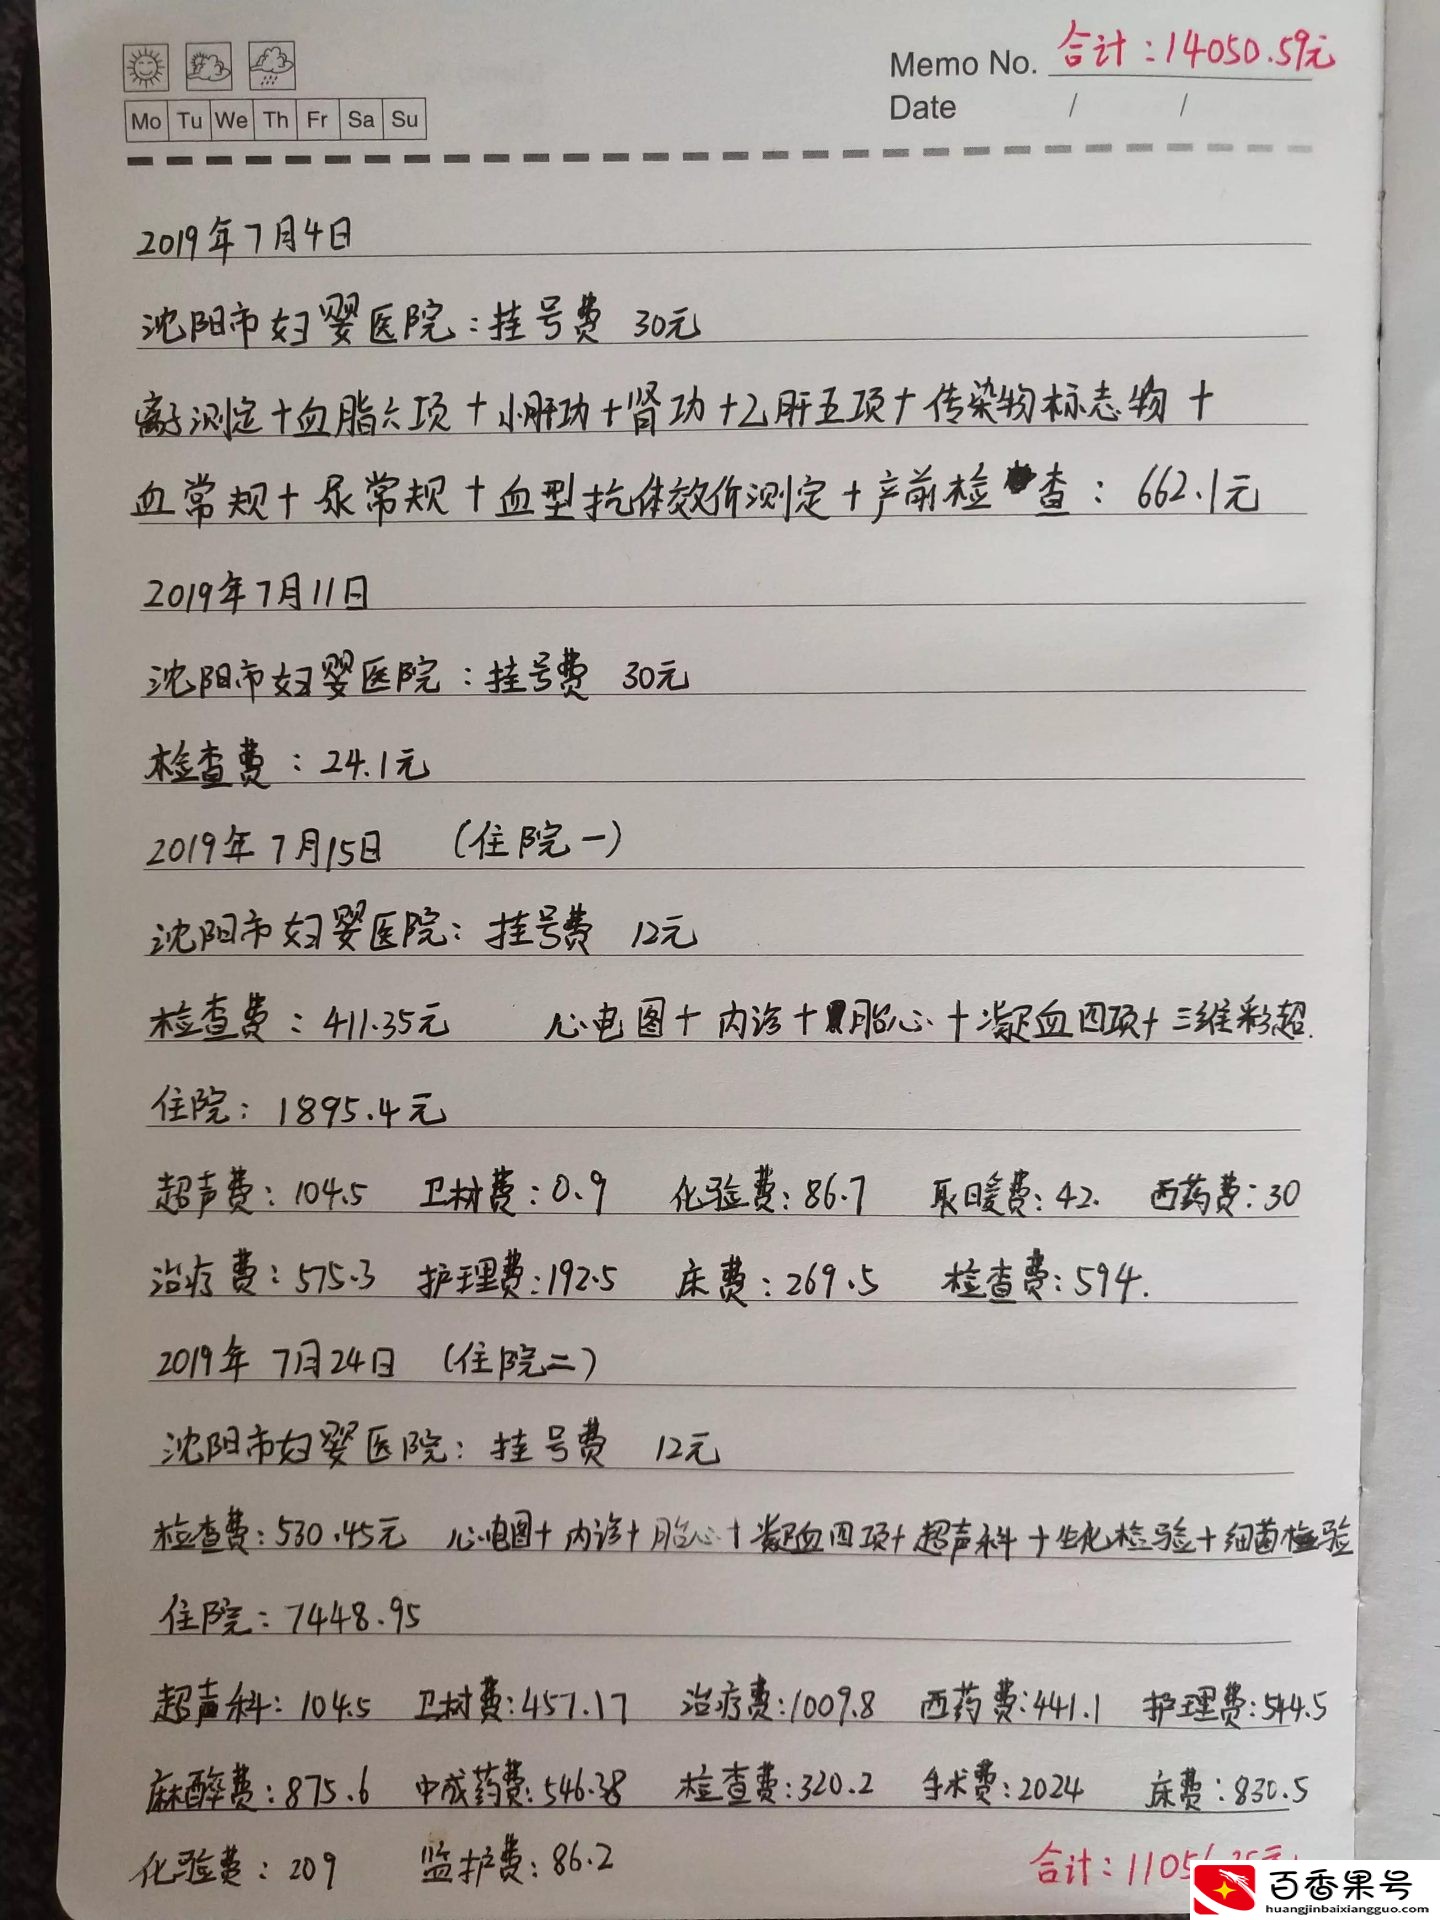 合计:14050.59元
Memo No.
Date / /
Mo Tu We Th Fr Sa Su
2019年7月4日
沈阳市妇婴医院:挂号费 30元
离子测定+血脂六项+小肝功+肾功+乙肝五项+传染物标志物+
血常规+尿常规+血型抗体效价测定+产前检查:662.1元
2019年7月11日
沈阳市妇婴医院:挂号费 30元
检查费:24.1元
2019年7月15日 (住院一)
沈阳市妇婴医院:挂号费 12元
检查费:411.35元 心电图+内诊+胎心+凝血四项+三维彩超.
住院:1895.4元
超声费:104.5 卫材费:0.9 化验费:86.7 取暖费:42. 西药费:30
治疗费:575.3 护理费:192.5 床费:269.5 检查费:594.
2019年7月24日 (住院二)
沈阳市妇婴医院:挂号费 12元
检查费:530.45元 心电图+内诊+胎心+凝血四项+超声科+生化检验+细菌检验
住院:7448.95
超声科:104.5 卫材费:457.17 治疗费:1009.8 西药费:441.1 护理费:544.5
麻醉费:875.6 中成药费:546.38 检查费:320.2 手术费:2024 床费:830.5
化验费:209 监护费:86.2 合计:
百香果号
huangjinbaixiangguo.com